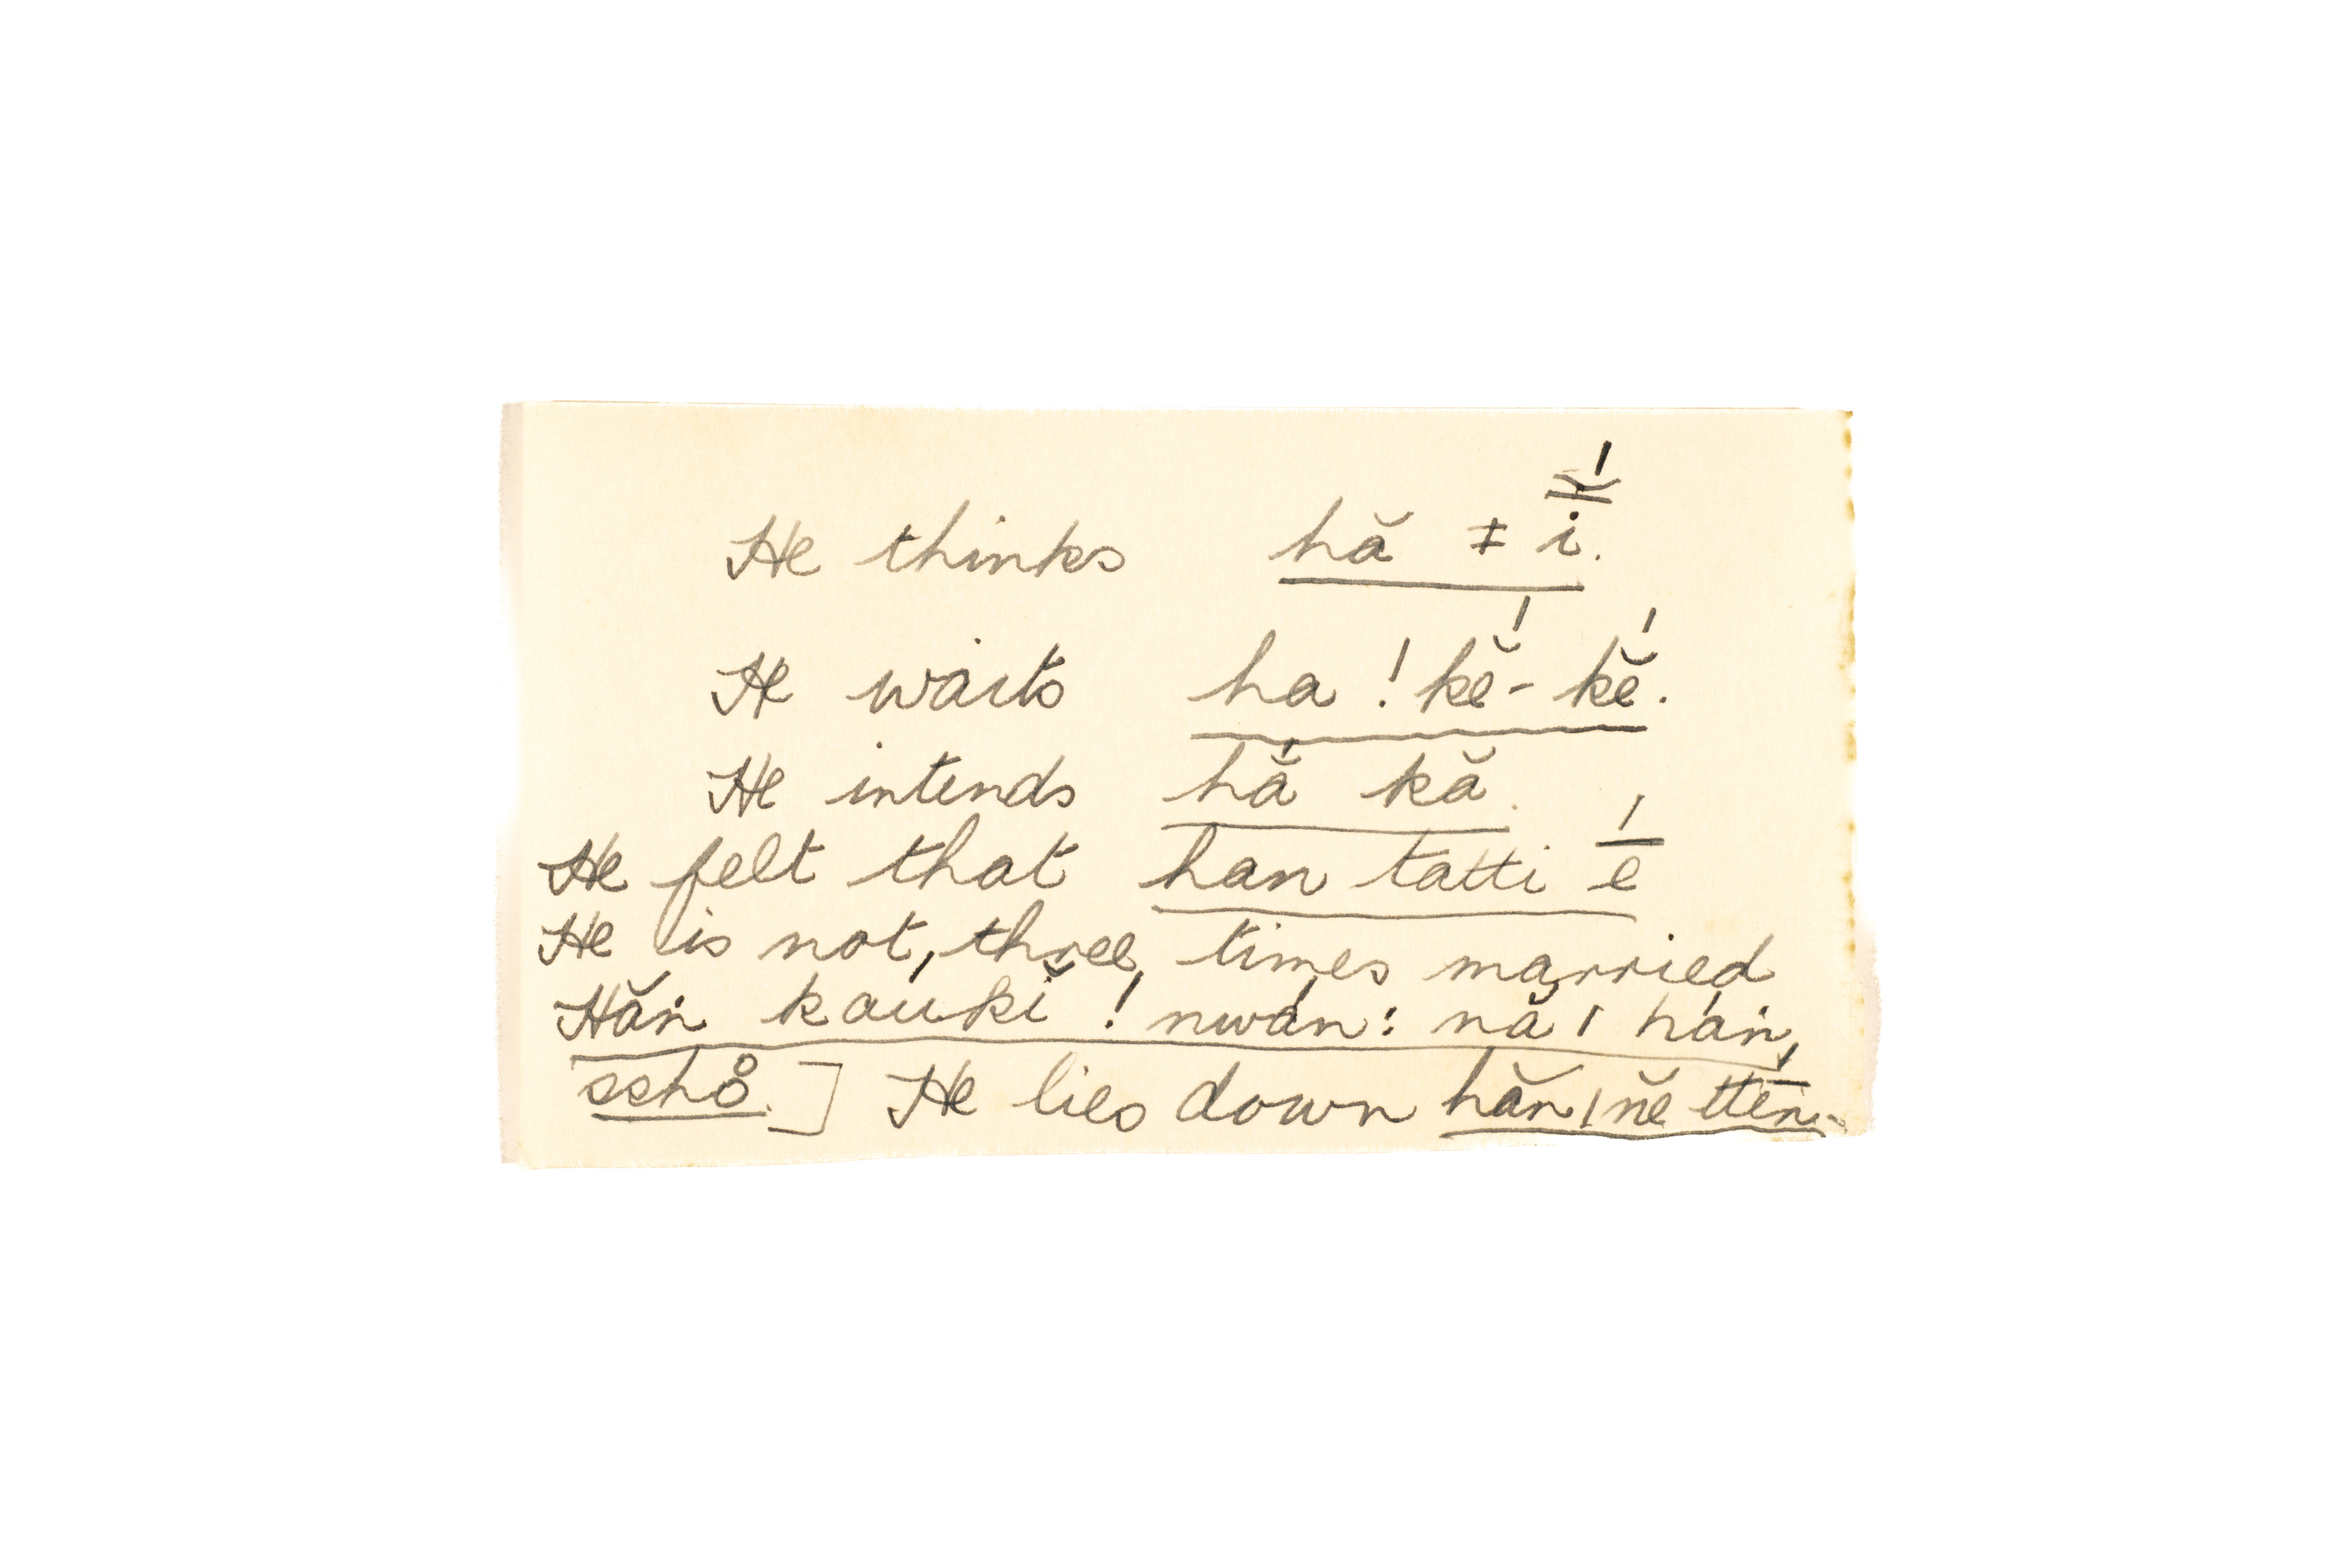 He thinks hă ǂ ī̆́.
He waits ha ! kĕ́ - kĕ́.
He intends hắ kă.
He felt that han tatti ḗ
He is not, three, times married
Hăṅ kaukĭ ! nwáṅ : nă ǀ háṅ,
sshǒ̊. ] He lies down hăṅ ǀ nĕ ttḗṅ.